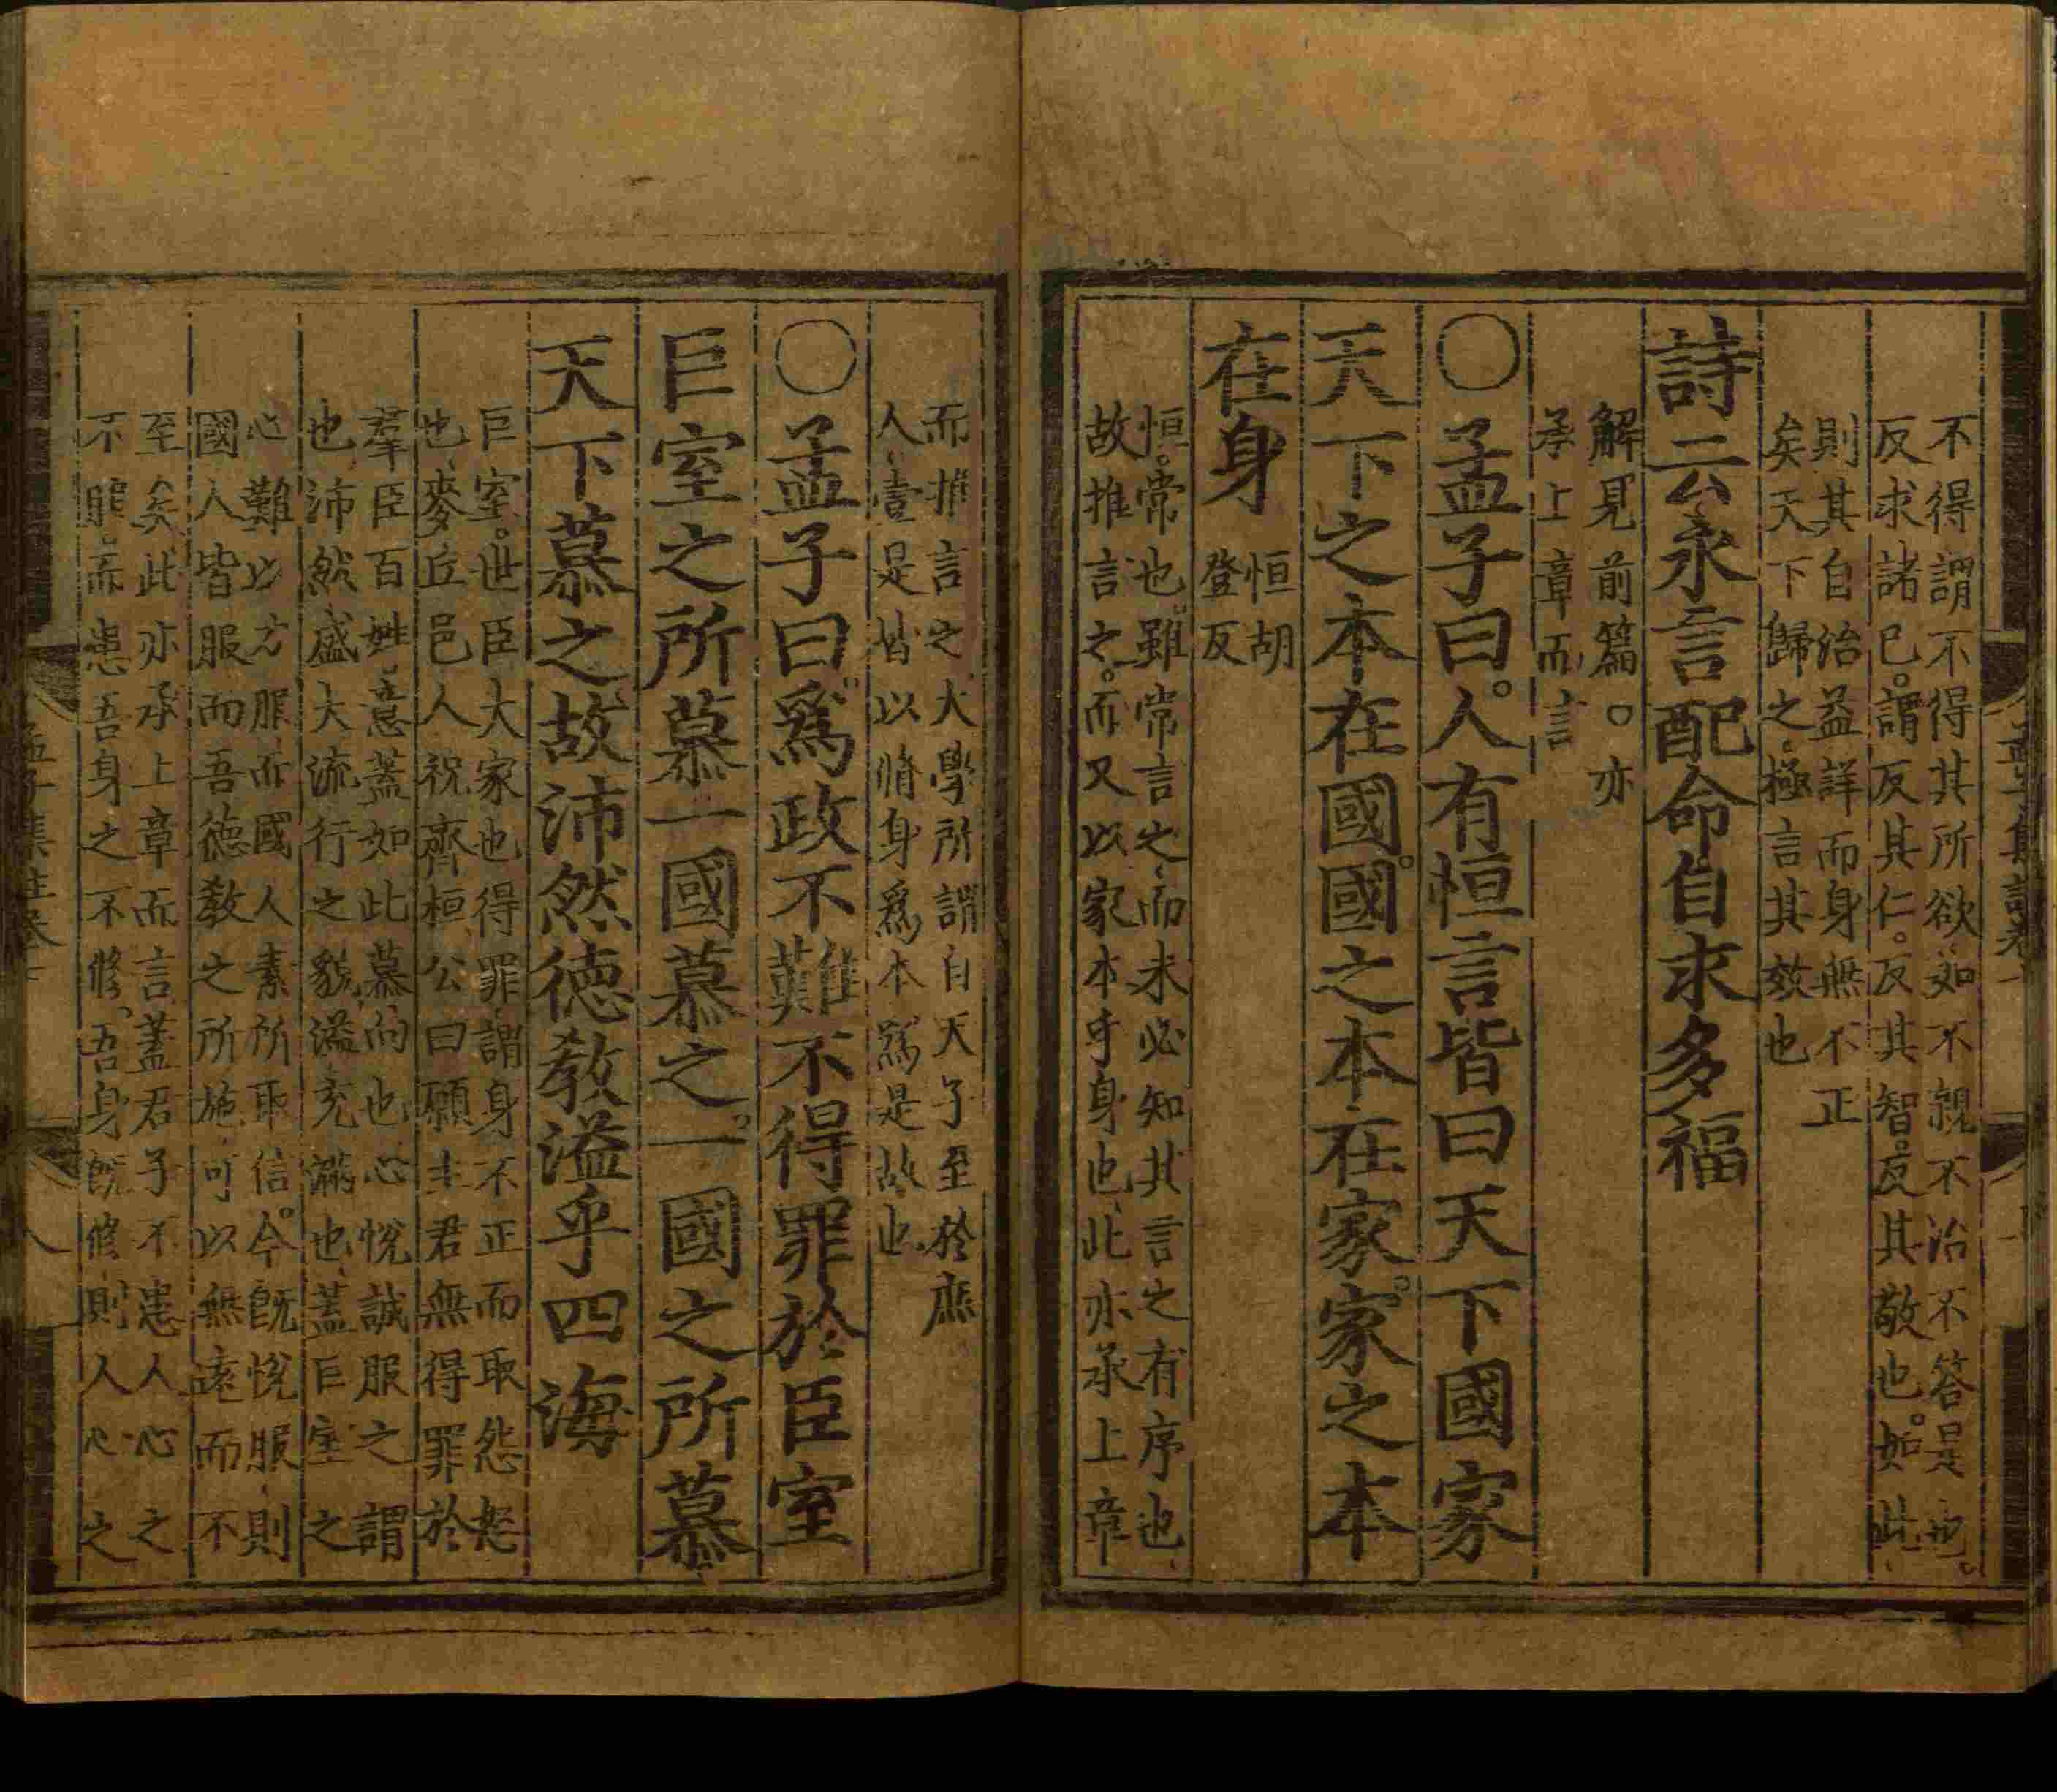 不得謂不得其所欲如不親不治不答是也
反求諸己謂反其仁反其智反其敬也如此
則其自治益詳而身無不正
矣天下歸之極言其效也
詩云永言配命自求多福
解見前篇○亦
承上章而言
○孟子曰人有恒言皆曰天下國家
天下之本在國國之本在家家之本
在身
恒胡
登反
恒常也雖常言之而未必知其言之有序也
故推言之而又以家本乎身也此亦承上章
而推言之大學所謂自天子至於庶
人壹是皆以脩身爲本爲是故也
○孟子曰爲政不難不得罪於臣室
巨室之所慕一國慕之一國之所慕
天下慕之故沛然德敎溢乎四海
巨室世臣大家也得罪謂身不正而取怨怒
也麥丘邑人祝齊桓公曰願主君無得罪於
羣臣百姓意蓋如此慕向也心悅誠服之謂
也沛然盛大流行之貌溢充滿也蓋巨室之
心難以力服而國人素所取信今旣悅服則
國人皆服而吾德敎之所施可以無遠而不
至矣此亦承上章而言蓋君子不患人心之
不服而患吾身之不修吾身旣修則人心之
孟子集註卷
八